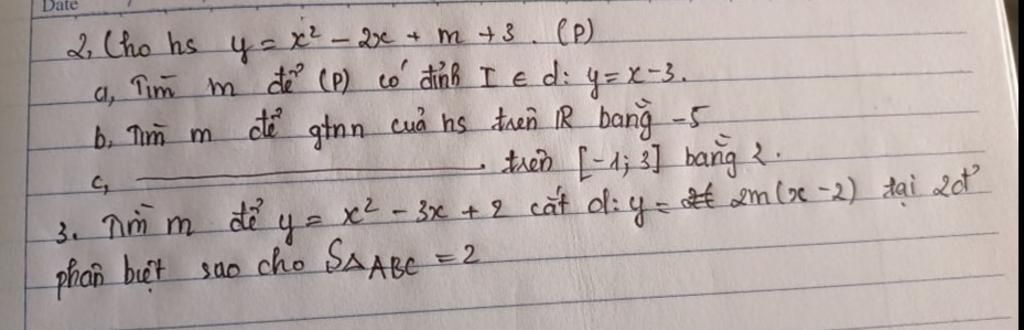 Date
2, Cho hs y = x² - 2x + m + 3. (P)
a, Tìm m để (P) có đỉnh I ∈ d: y = x - 3.
b, Tìm m để gtnn của hs trên R bằng -5
c, ________ trên [-1; 3] bằng 2.
3. Tìm m để y = x² - 3x + 2 cắt d: y = 2m(x - 2) tại 2đ'
phân biệt sao cho S△ABC = 2